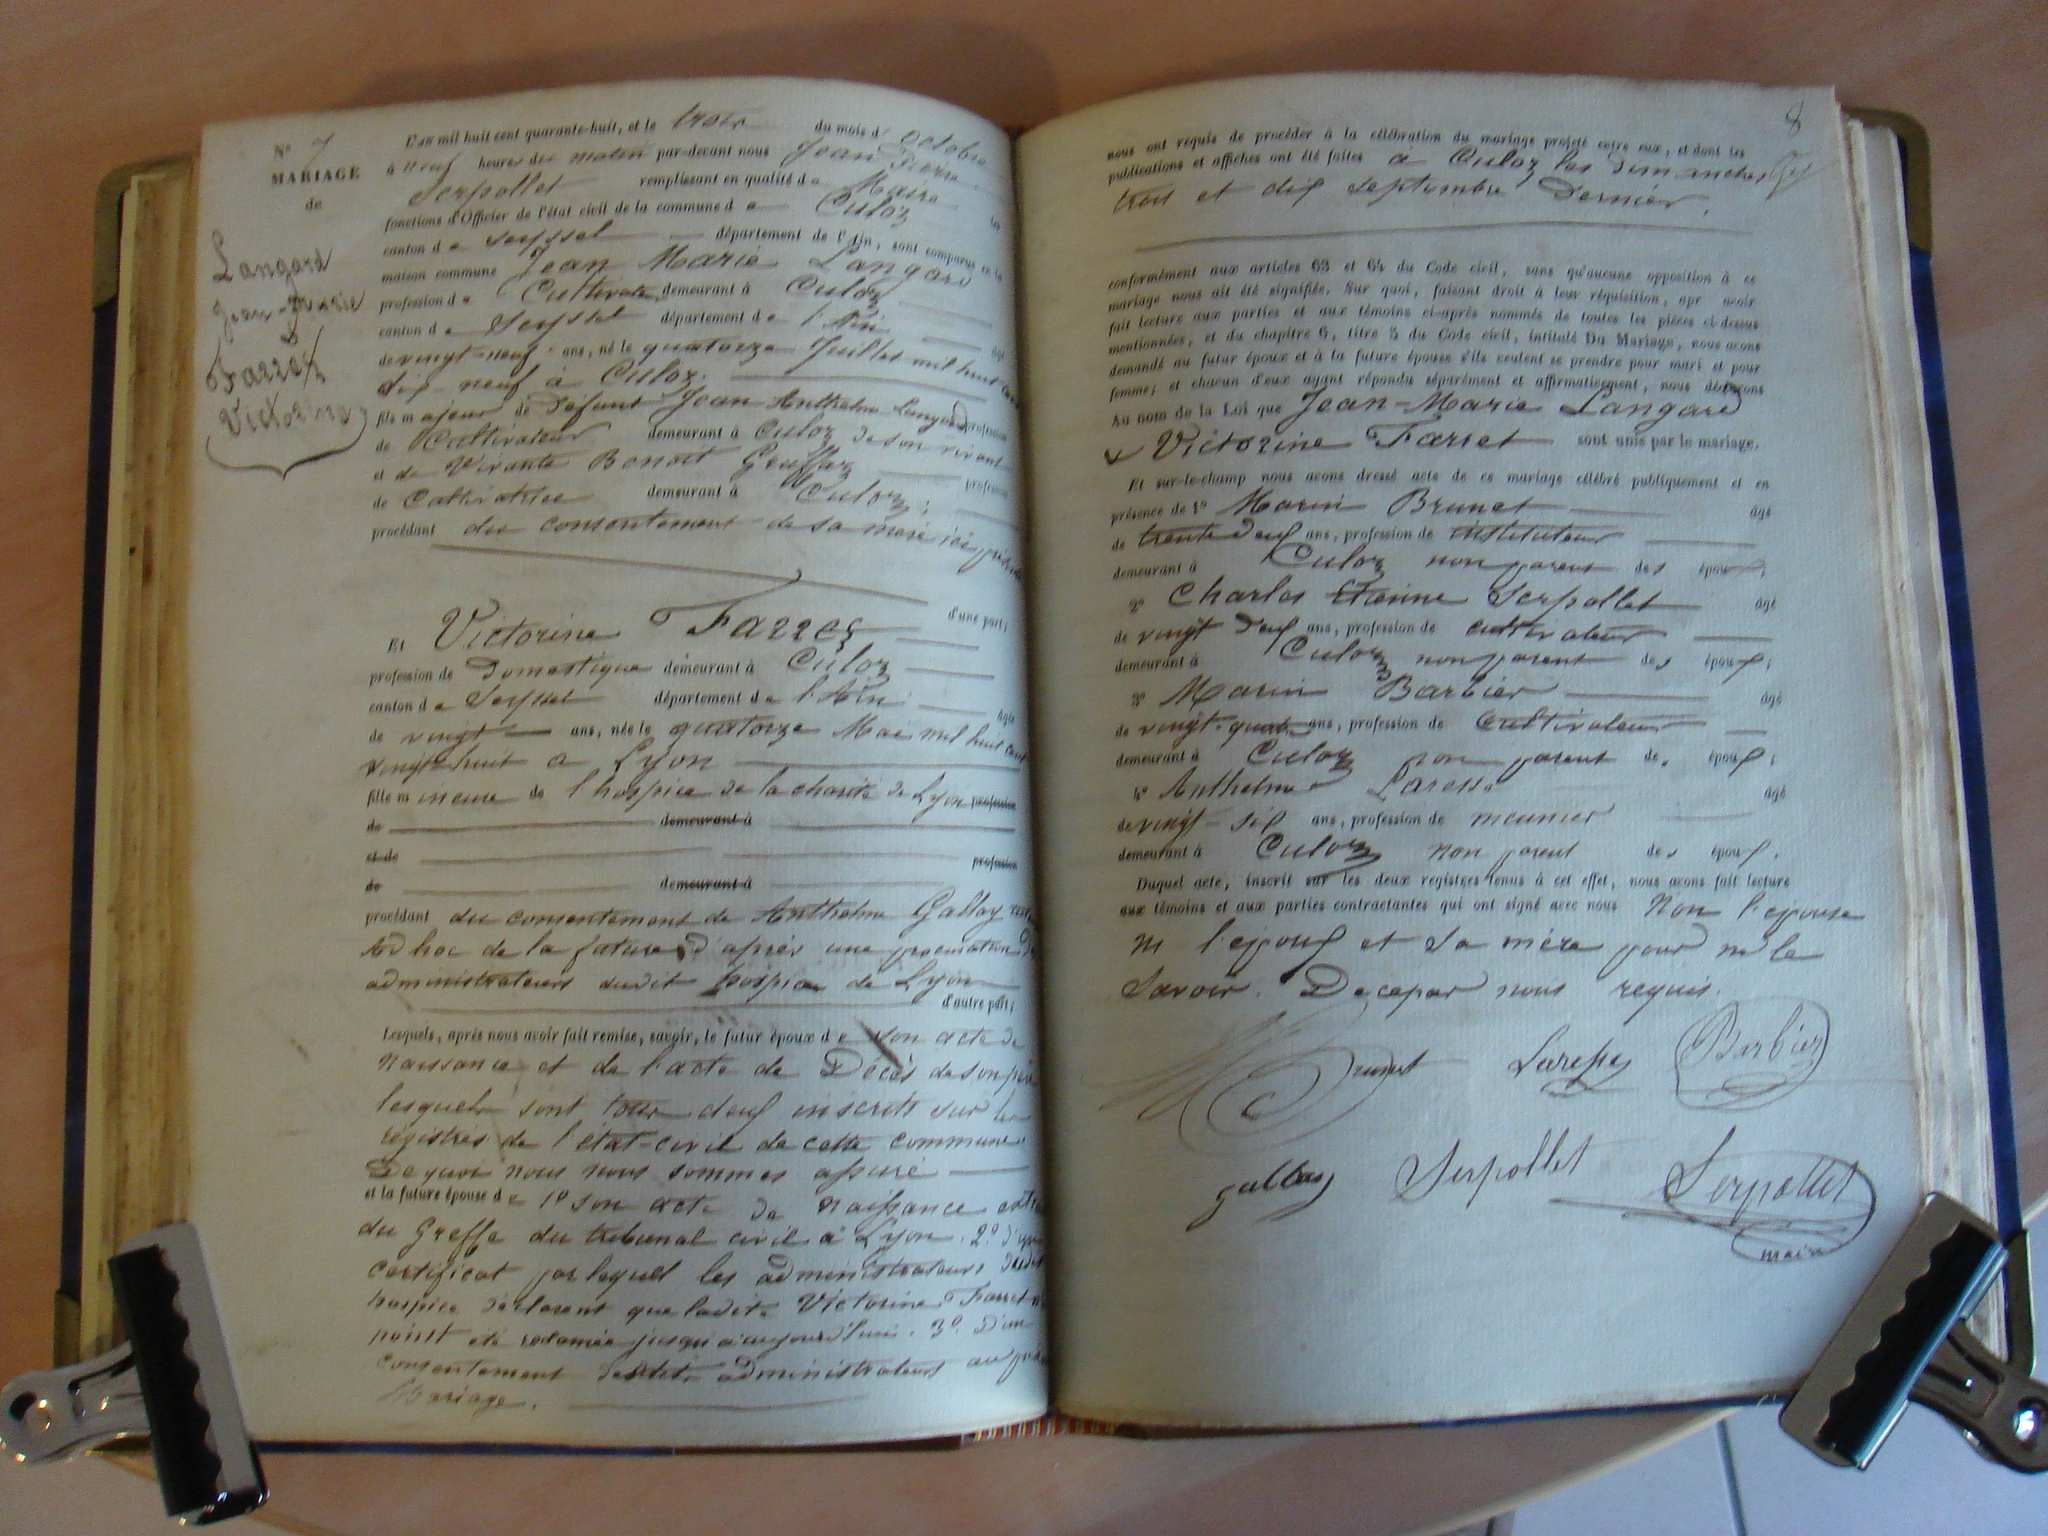 N° 7
MARIAGE
de
Langard
Jean-Marie
&
Farret
Victorine
L'an mil huit cent quarante-huit, et le trois du mois d'octobre
à neuf heures du matin par-devant nous Jean Pierre
Serpollet remplissant en qualité de Maire les
fonctions d'Officier de l'état civil de la commune de Culoz
canton de Seyssel département de l'Ain, sont comparus en la
maison commune Jean Marie Langard
profession de Cultivateur demeurant à Culoz
canton de Seyssel département de l'Ain âgé
de vingt-neuf ans, né le quatorze Juillet mil huit cent
dix neuf à Culoz.
fils majeur de Défunt Jean Anthelme Langard profession
de Cultivateur demeurant à Culoz de son vivant
et de Vivante Benoit Gruffaz profession
de Cultivatrice demeurant à Culoz;
procédant du consentement de sa mère ici présente
d'une part;
Et Victorine Farret
profession de Domestique demeurant à Culoz
canton de Seyssel département de l'Ain âgée
de vingt ans, née le quatorze Mai mil huit cent
vingt-huit a Lyon
fille mineure de l'hospice de la charité de Lyon profession
de demeurant à
et de profession
de demeurant à
procédant du consentement de Anthelme Gallay
ad hoc de la future d'après une procuration
administrateurs dudit hospice de Lyon
d'autre part;
Lesquels, après nous avoir fait remise, savoir, le futur époux de son acte de
naissance et de l'acte de Décès de son père
lesquels sont tous deux inscrits sur les
régistres de l'état-civil de cette commune
De quoi nous nous sommes assuré
et la future épouse de 1° son acte de naissance
du Greffe du tribunal civil à Lyon. 2° d'un
certificat par lequel les administrateurs dudit
hospice déclarent que ladite Victorine Farret n'a
point été reclamée jusqu'à aujourd'hui. 3° d'un
consentement desdits administrateurs au présent
Mariage.
8
nous ont requis de procéder à la célébration du mariage projeté entre eux, et dont les
publications et affiches ont été faites à Culoz les Dimanches
trois et dix septembre Dernier.
conformément aux articles 63 et 64 du Code civil, sans qu'aucune opposition à ce
mariage nous ait été signifiée. Sur quoi, faisant droit à leur réquisition, apr avoir
fait lecture aux parties et aux témoins ci-après nommés de toutes les pièces ci-dessus
mentionnées, et du chapitre 6, titre 5 du Code civil, intitulé Du Mariage, nous avons
demandé au futur époux et à la future épouse s'ils veulent se prendre pour mari et pour
femme; et chacun d'eux ayant répondu séparément et affirmativement, nous déclarons
Au nom de la Loi que Jean-Marie Langard
& Victorine Farret sont unis par le mariage.
Et sur-le-champ nous avons dressé acte de ce mariage célébré publiquement et en
présence de 1° Marin Brunet âgé
de trente deux ans, profession de instituteur
demeurant à Culoz non parent des époux;
2° Charles Etienne Serpollet âgé
de vingt deux ans, profession de cultivateur
demeurant à Culoz non parent des époux;
3° Marin Barbier âgé
de vingt-quatre ans, profession de Cultivateur
demeurant à Culoz non parent des époux;
4° Anthelme âgé
de vingt-six ans, profession de meunier
demeurant à Culoz non parent des époux.
Duquel acte, inscrit sur les deux registres tenus à cet effet, nous avons fait lecture
aux témoins et aux parties contractantes qui ont signé avec nous Non l'epouse
ni l'epoux et sa mère pour ne le
savoir. De ce par nous requis.
Brunet
Barbier
Gallay Serpollet Serpollet
maire